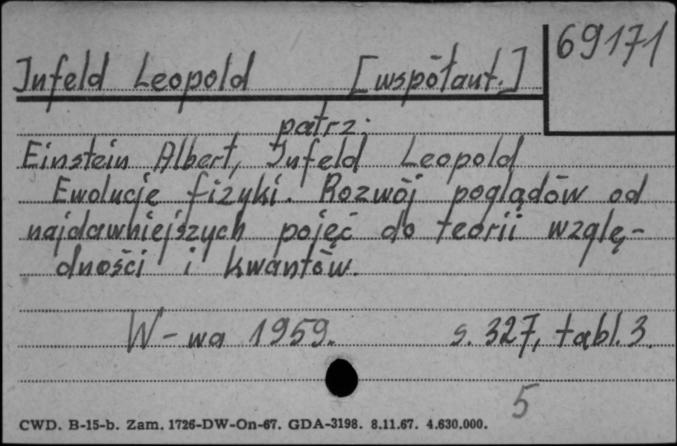 69171
Infeld Leopold [współaut.]
patrz:
Einstein Albert, Infeld Leopold
Ewolucje fizyki. Rozwój poglądów od
najdawniejszych pojęć do teorii wzglę-
dności i kwantów.
W-wa 1959. s. 327, tabl. 3.
5
CWD. B-15-b. Zam. 1726-DW-On-67. GDA-3198. 8.11.67. 4.630.000.